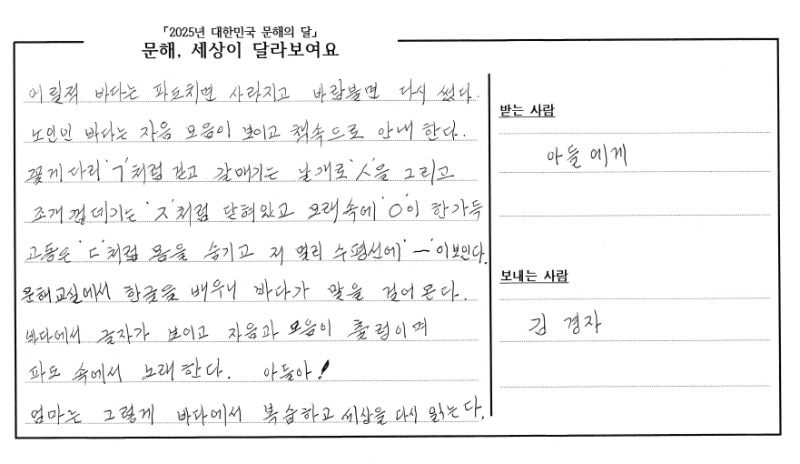 「2025년 대한민국 문해의 달」
문해, 세상이 달라보여요
어릴적 바다는 파도치면 사라지고 바람불면 다시 썼다.
노인인 바다는 자음 모음이 보이고 책속으로 안내 한다.
꽃게다리 'ㄱ'처럼 걷고 갈매기는 날개로 'ㅅ'을 그리고
조개껍데기는 'ㅈ'처럼 닫혀있고 모래속에 'ㅇ'이 한가득
고동은 'ㄷ'처럼 몸을 숨기고 저 멀리 수평선에 'ㅡ'이보인다.
문해교실에서 한글을 배우니 바다가 말을 걸어온다.
바다에서 글자가 보이고 자음과 모음이 출렁이며
파도 속에서 노래한다. 아들아!
엄마는 그렇게 바다에서 복습하고 세상을 다시 읽는다.
받는 사람
아들에게
보내는 사람
김 경자